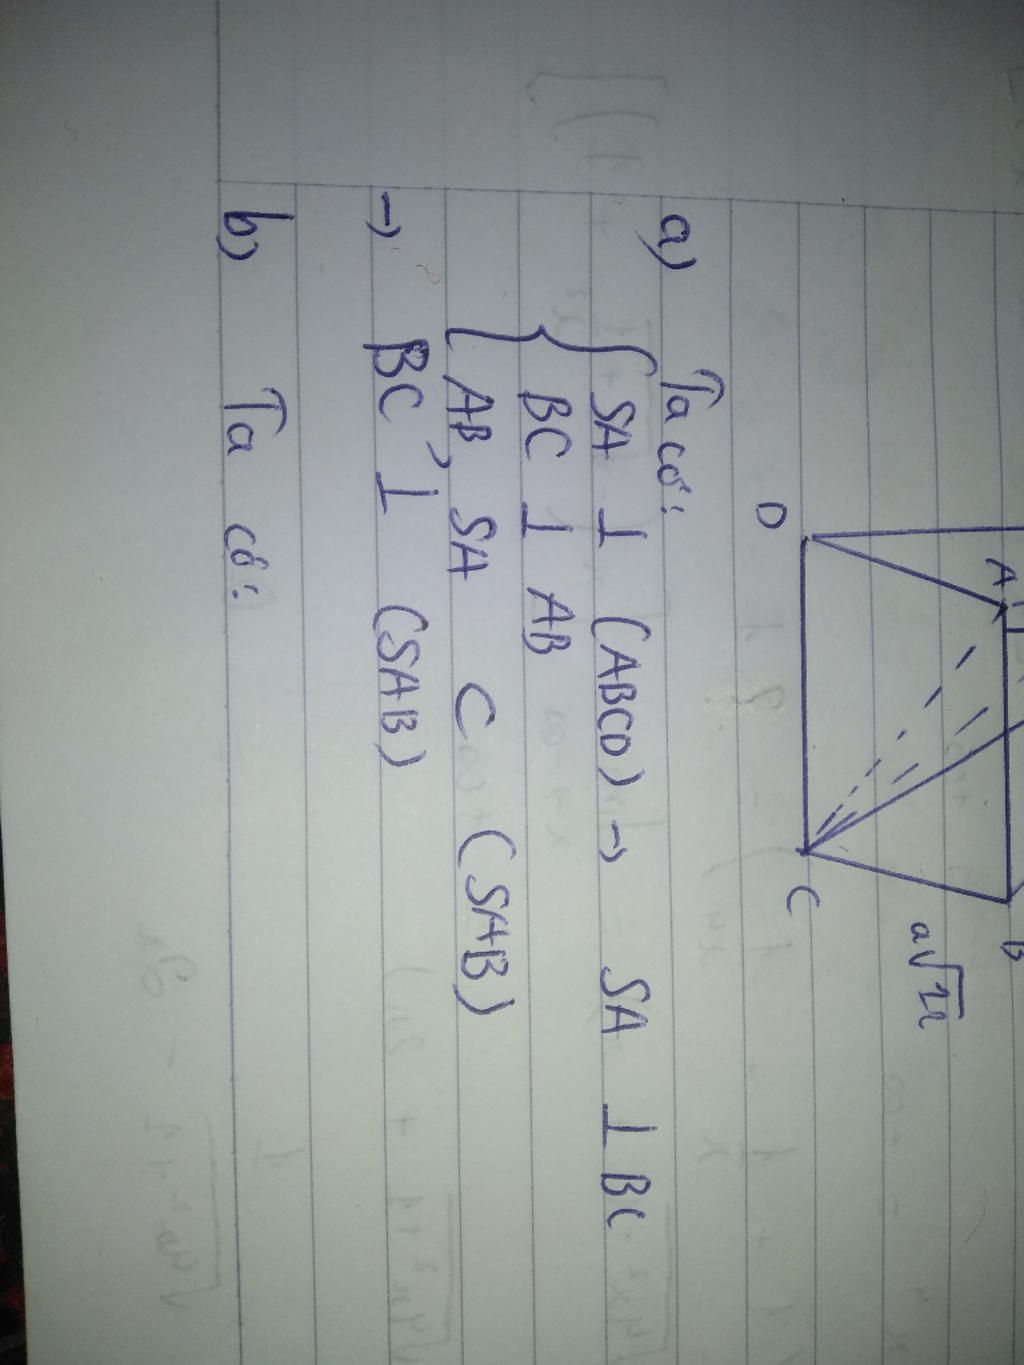 A
B
D
C
a√2
a) Ta có:
SA ⊥ (ABCD) → SA ⊥ BC
BC ⊥ AB
AB, SA ⊂ (SAB)
→ BC ⊥ (SAB)
b) Ta có: